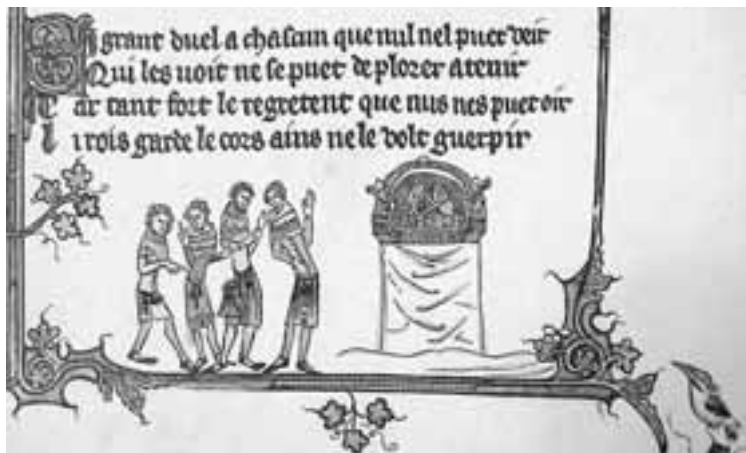 Si grant duel a chascun que nul nel puet veir
Qui les uoit ne se puet de plorer atenir
Car tant fort le regretent que nus nes puet oir
Li rois garde le cors ains ne le volt guerpir